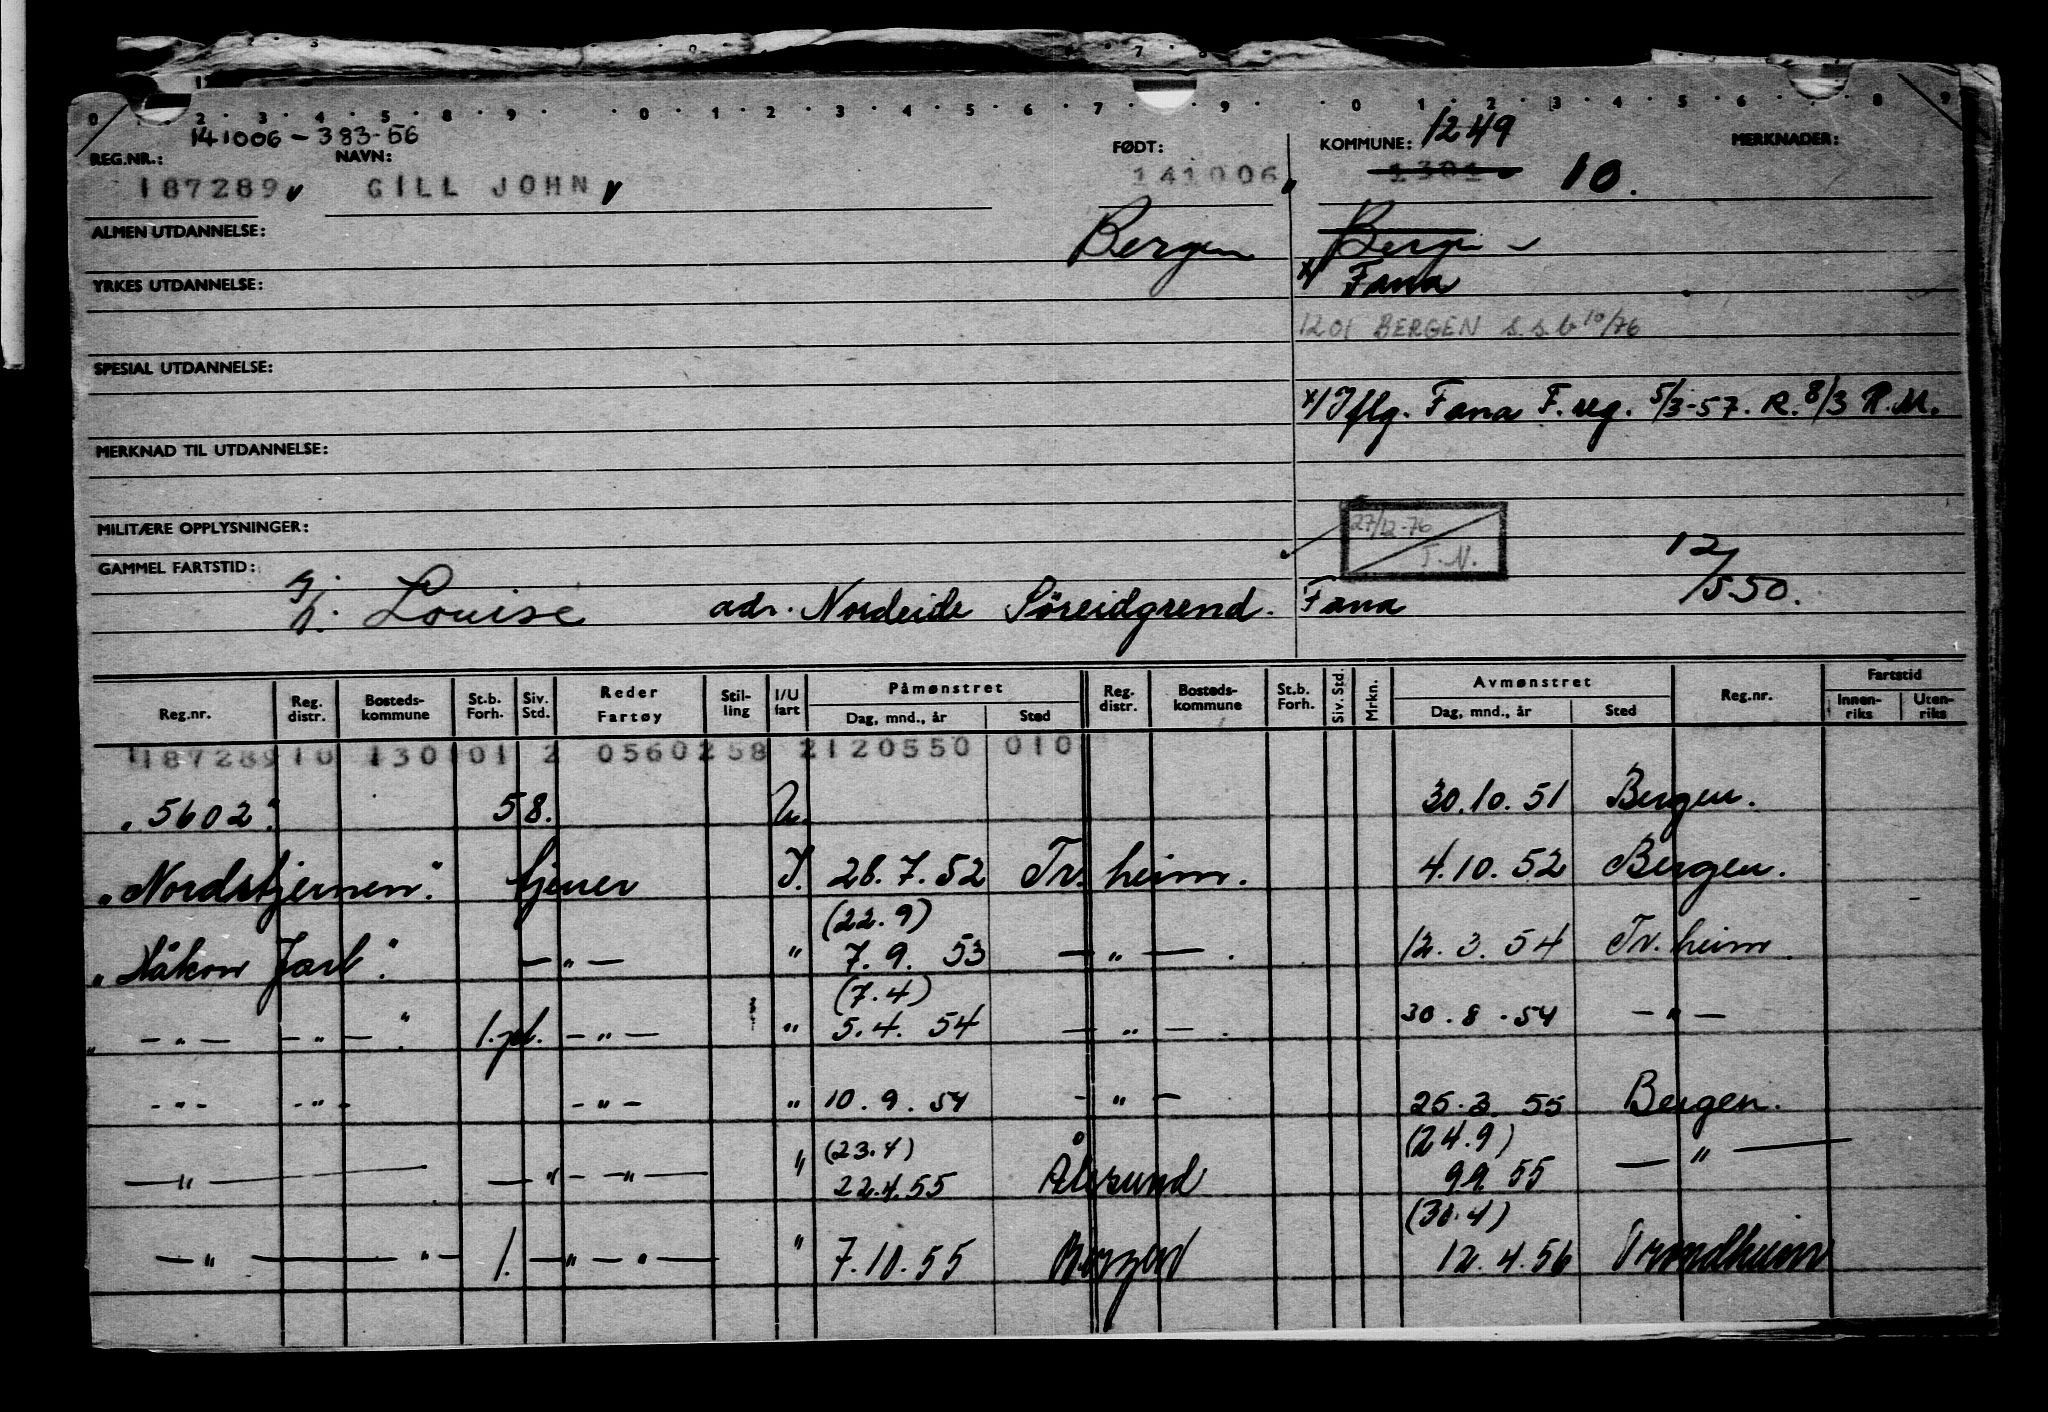 141006-383-56
REG.NR.: NAVN: FØDT: KOMMUNE: 1249 MERKNADER:
187289 GILL JOHN 141006 1301 10.
ALMEN UTDANNELSE: Bergen Bergen
YRKES UTDANNELSE: x/ Fana
1201 BERGEN s.s.b 10/76
SPESIAL UTDANNELSE:
x/ Iflg. Fana F.reg. 5/3-57. R. 8/3 R.M.
MERKNAD TIL UTDANNELSE:
MILITÆRE OPPLYSNINGER: 27/12-76 T.N.
GAMMEL FARTSTID: 12/550.
g/h. Louise adr. Nordeide Söreidgrend. Fana
Reg.nr. Reg. distr. Bosteds-kommune St.b. Forh. Siv. Std. Reder Fartøy Stil-ling I/U fart Påmønstret Dag, mnd., år Sted Reg. distr. Bosteds-kommune St.b. Forh. Siv. Std. Mrkn. Avmønstret Dag, mnd., år Sted Reg.nr. Fartstid Innen-riks Uten-riks
118728910 130101 2 0560258 2120550 010
"5602". 58. U. 30.10.51 Bergen.
"Nordstjernen". tjener I. 28.7.52 Tr.heim. 4.10.52 Bergen.
(22.9)
"Håkon Jarl". — " — " 7.9. 53 — " — . 12.3.54 Tr.heim
(7.4)
" — " — — " — " 1.pl. — " — " 5.4. 54 — " — . 30.8.54 — " —
- " - - " - - " - " 10.9.54 - " - 25.3.55 Bergen.
(23.4) (24.9)
— " — — " - " — " 22.4.55 Ålesund 9.9.55 — " —
(30.4)
— " — " — 1. — " — " — " 7.10.55 Bergen 12.4.56 Trondheim